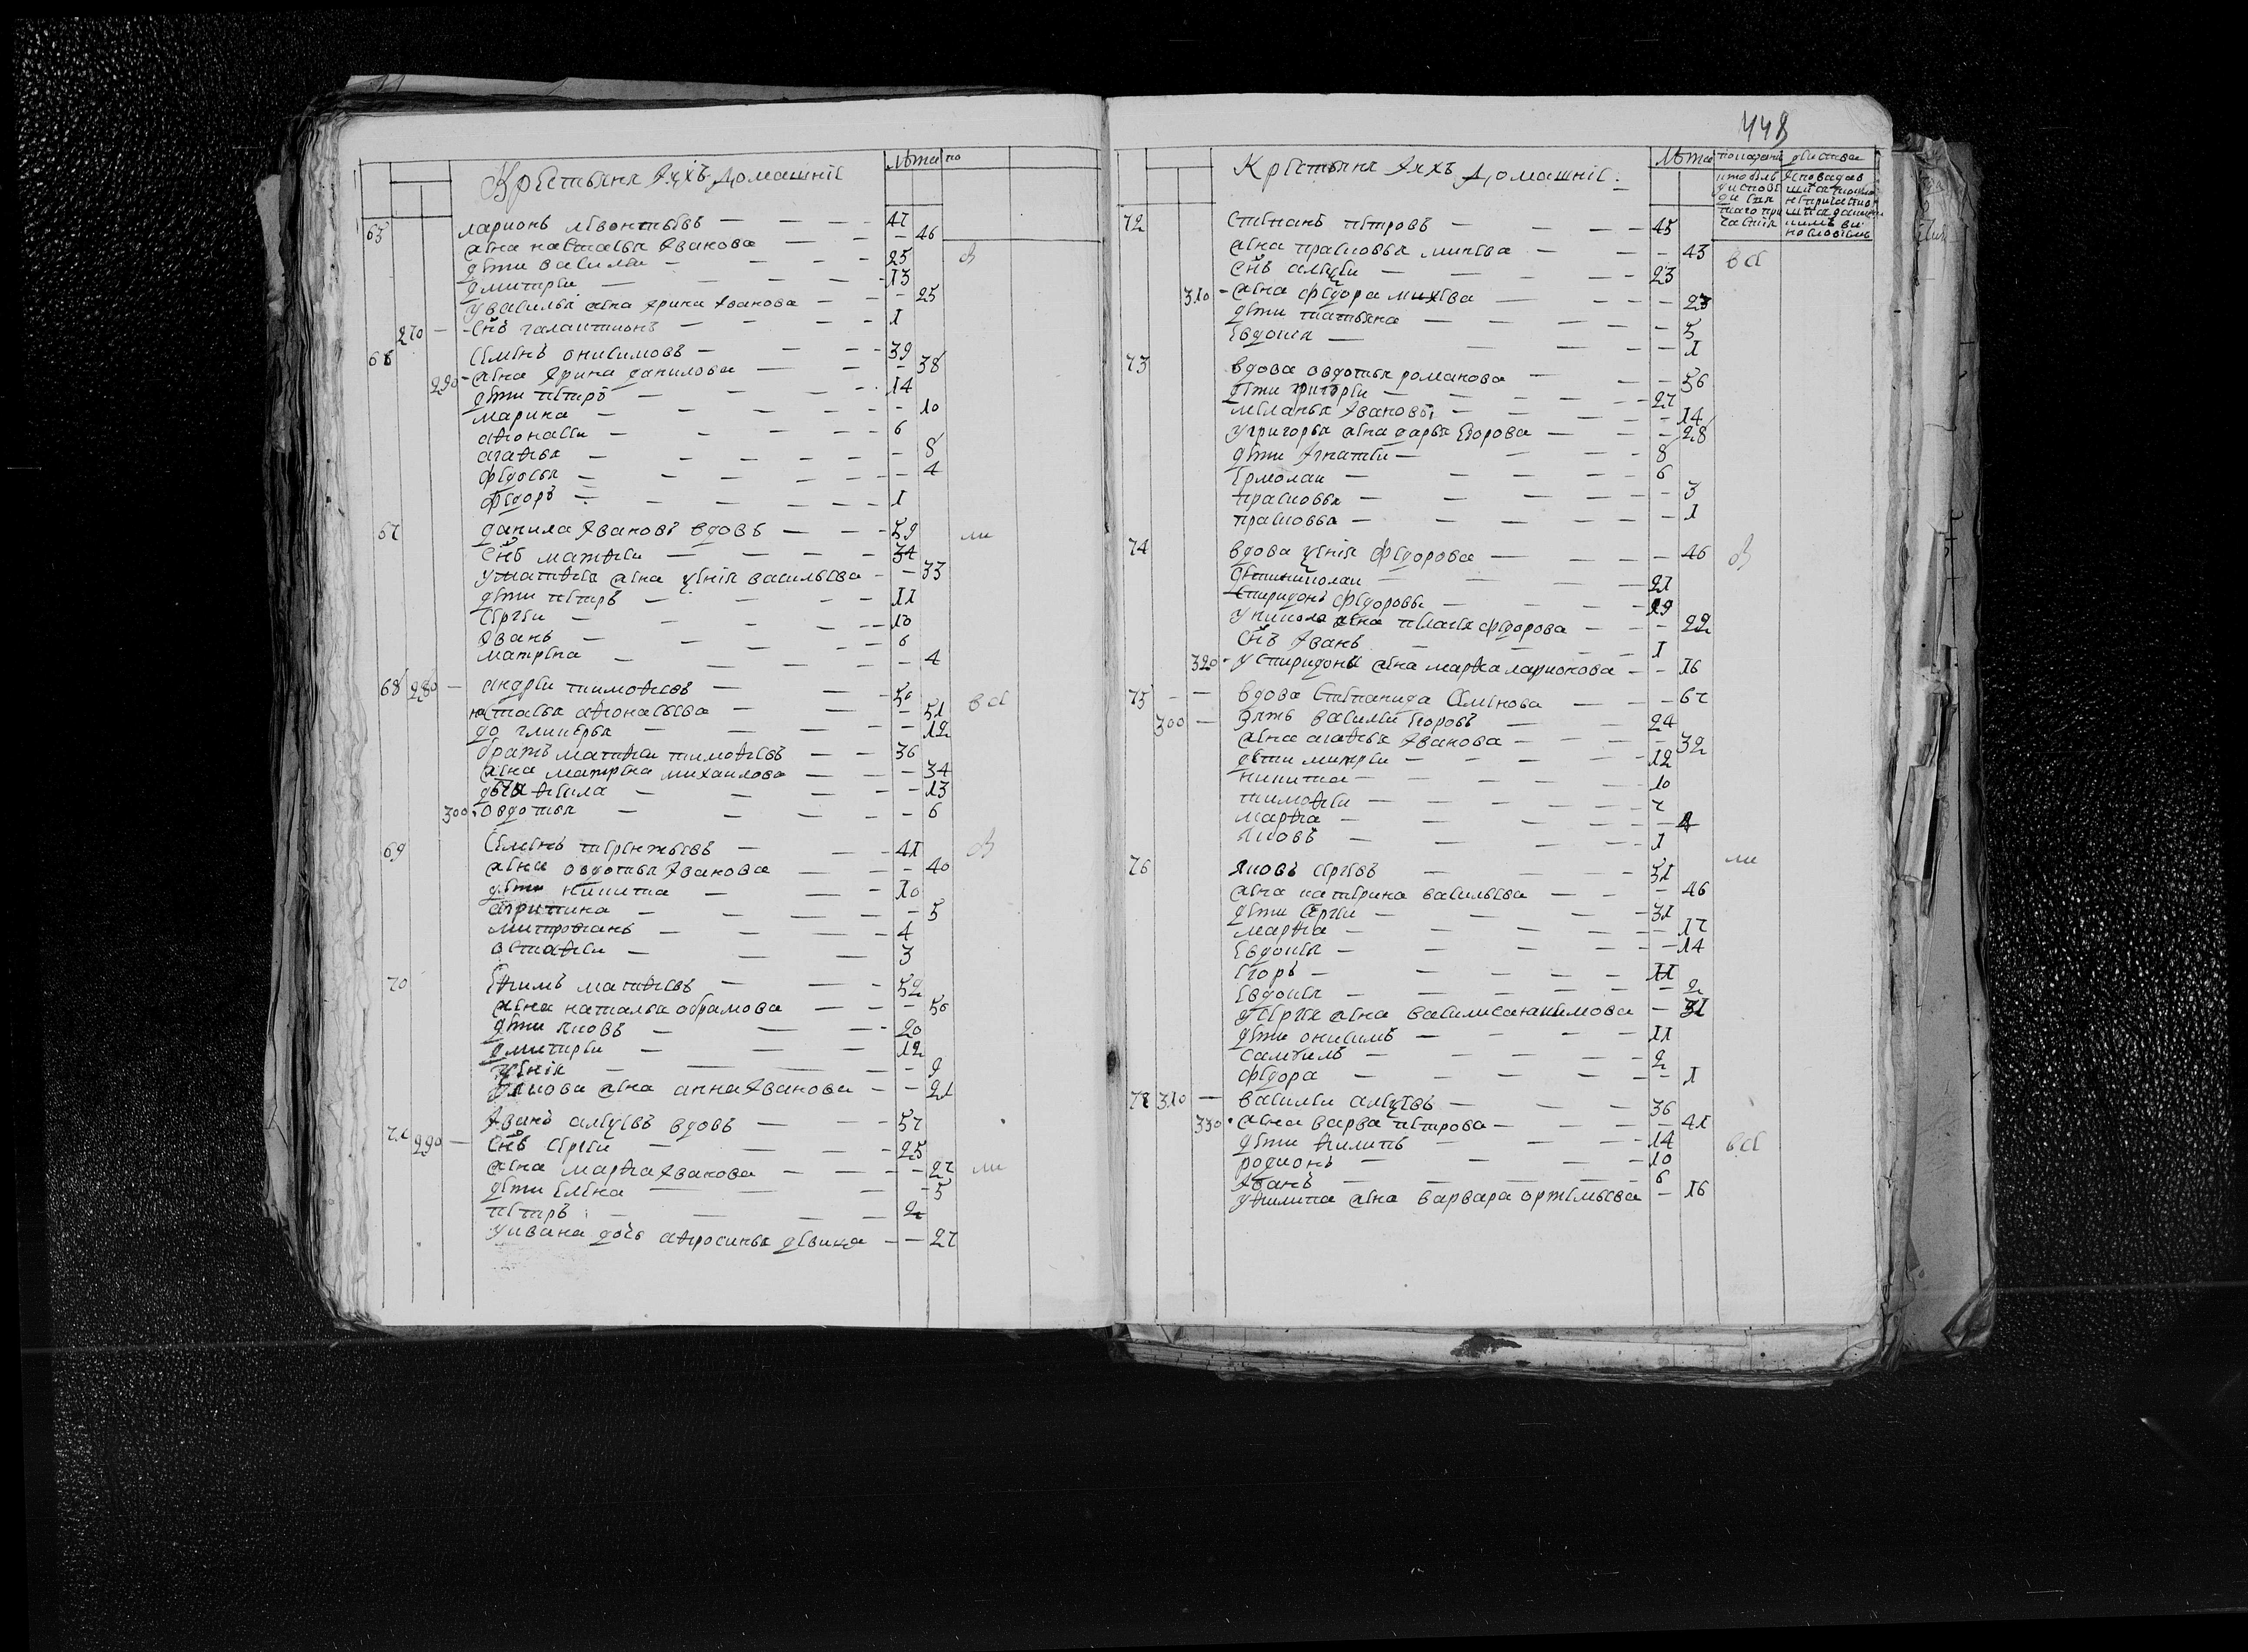 448
Крестьяня Ихъ Домашние
Лѣта по
65 ларионъ левонтьевъ — 47
жена настасья Иванова — 46
дѣти василеи — 25
дмитреи — 13
у василья жена Ирина Иванова — 25
270 — снъ галактионъ — 1
66 семенъ онисимовъ — 39
290 - жена Ирина данилова — 38
дѣти петръ — 14
марина — 10
афонасеи — 6
агафья — 8
федосья — 4
федоръ — 1
67 данила Ивановъ вдовъ — 59
снъ матфеи — 34
у матфея жена ксения васильева — 33
дѣти петръ — 11
сергеи — 10
Иванъ — 6
матрена — 4
68 280 — андреи тимофеевъ — 50
настасья афонасьева — 51
до гликерья — 12
братъ матфеи тимофеевъ — 36
жена матрена михаилова — 34
фекла — 13
300 овдотья — 6
69 Семенъ терентьевъ — 41
жена овдотья Иванова — 40
дѣти никита — 10
агрипина — 5
митрофанъ — 4
остафеи — 3
70 Ефимъ матфеевъ — 52
жена наталья обрамова — 50
дѣти яковъ — 20
дмитреи — 12
ксения — 9
у якова жена анна Иванова — 21
71 290 — Иванъ алексеевъ вдовъ — 57
снъ сергеи — 25
жена марфа Иванова — 27
дѣти елена — 5
петръ — 2
у ивана дочь афросинья девица — 27
Крестьяня Ихъ Домашние
Лѣта
72 степанъ петровъ — 45
жена прасковья — 43
снъ алексеи — 23
310 - жена федора михеева — 23
дѣти татьяна — 5
евдокея — 1
73 вдова овдотья романова — 56
дѣти григореи — 27
меланья Ивановы — 14
у григорья жена дарья Егорова — 28
дѣти Игнатеи — 8
ермолаи — 6
прасковья — 3
прасковья — 1
74 вдова ксения федорова — 46
дѣти николаи — 21
спиридонъ федоровы — 19
у николая жена пелагея федорова — 22
снъ Иванъ — 1
320 - у спиридона жена марфа ларионова — 16
75 — вдова степанида Семенова — 67
300 — зять василеи егоровъ — 24
жена агафья Иванова — 32
дѣти митреи — 12
никита — 10
тимофеи — 7
марфа — 4
яковъ — 1
76 яковъ сергеевъ — 51
жена катерина васильева — 46
дѣти сергеи — 31
марфа — 17
евдокея — 14
егоръ — 11
евдокея — 2
у сергея жена василиса якимова — 31
дѣти онисимъ — 11
самоилъ — 2
федора — 1
77 310 — василеи алексеевъ — 36
330 жена варва петрова — 41
дѣти филипъ — 14
родионъ — 10
Иванъ — 6
у филипа жена варвара ортемьева — 16